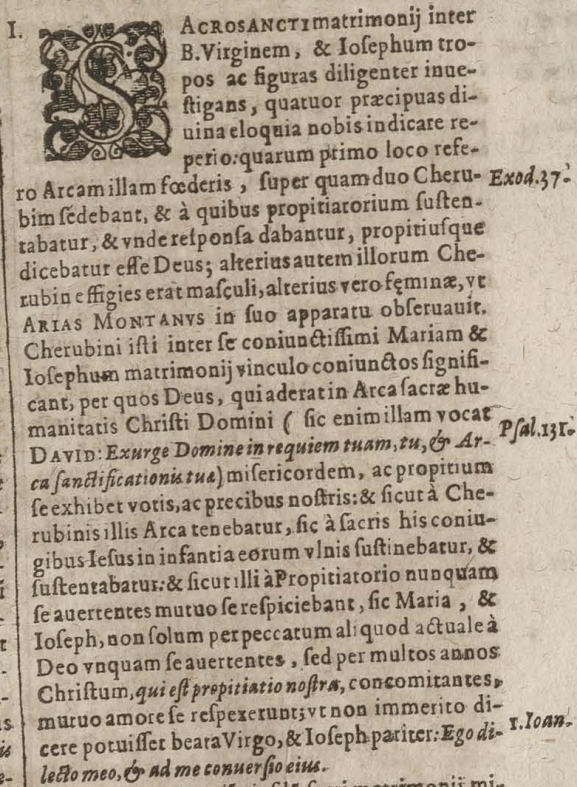 I. SACROSANCTI matrimonij inter
B. Virginem, & Iosephum tro-
pos ac figuras diligenter inue-
stigans, quatuor præcipuas di-
uina eloquia nobis indicare re-
perio: quarum primo loco refe-
ro Arcam illam fœderis, super quam duo Cheru- Exod. 37.
bim sedebant, & à quibus propitiatorium susten-
tabatur, & vnde responsa dabantur, propitiusque
dicebatur esse Deus; alterius autem illorum Che-
rubin effigies erat masculi, alterius vero fęminæ, vt
ARIAS MONTANVS in suo apparatu obseruauit.
Cherubini isti inter se coniunctissimi Mariam &
Iosephum matrimonij vinculo coniunctos signifi-
cant, per quos Deus, qui aderat in Arca sacræ hu-
manitatis Christi Domini ( sic enim illam vocat Psal. 131.
DAVID: Exurge Domine in requiem tuam, tu, & Ar-
ca sanctificationis tuæ) misericordem, ac propitium
se exhibet votis, ac precibus nostris: & sicut à Che-
rubinis illis Arca tenebatur, sic à sacris his coniu-
gibus Iesus in infantia eorum vlnis sustinebatur, &
sustentabatur: & sicut illi à Propitiatorio nunquam
se auertentes mutuo se respiciebant, sic Maria, &
Ioseph, non solum per peccatum aliquod actuale à
Deo vnquam se auertentes, sed per multos annos
Christum, qui est propitiatio nostra, concomitantes,
mutuo amore se respexerunt; vt non immerito di-
cere potuisset beata Virgo, & Ioseph pariter: Ego di- 1. Ioan.
lecto meo, & ad me conuersio eius.